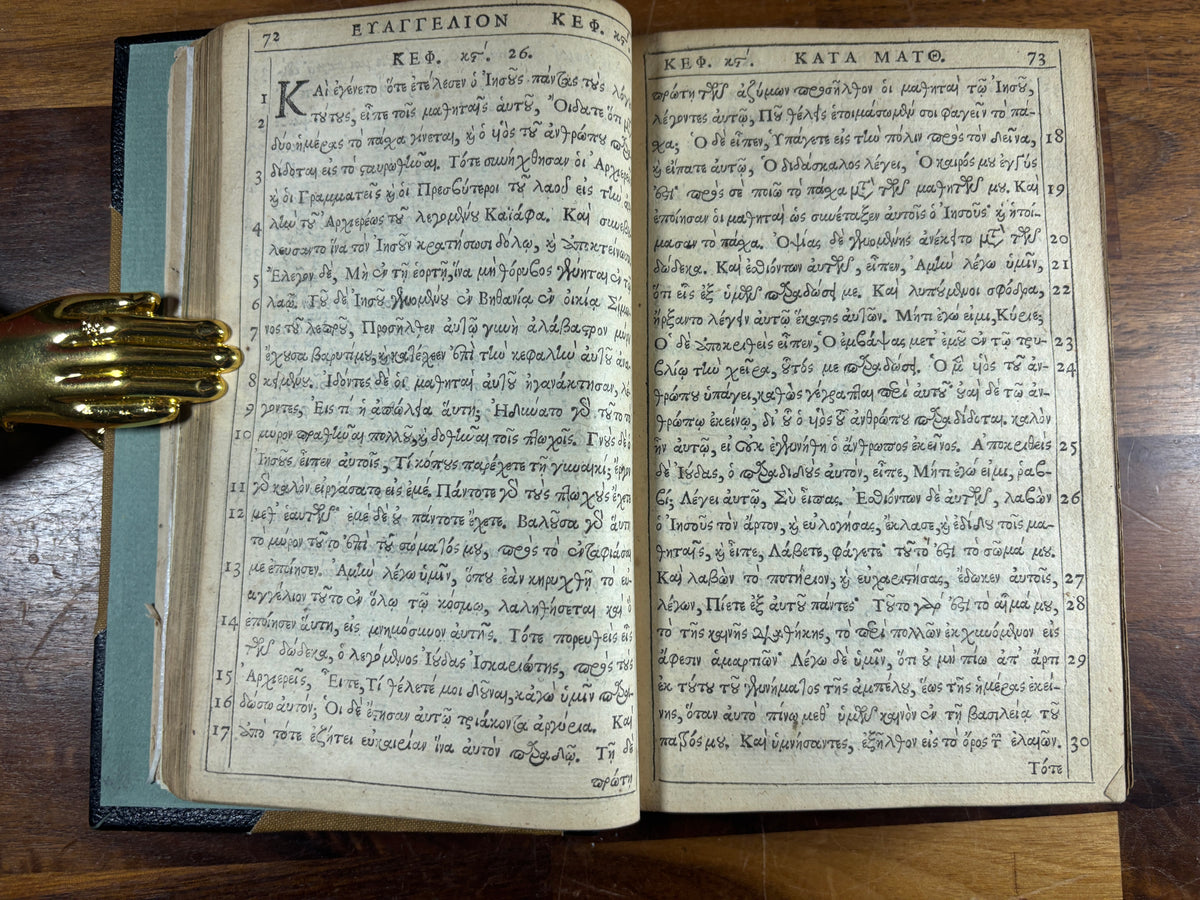 72 ΕΥΑΓΓΕΛΙΟΝ ΚΕΦ. κϛ΄.
ΚΕΦ. κϛ΄. 26.
1 ΚΑὶ ἐγένετο ὅτε ἐτέλεσεν ὁ Ἰησοῦς πάντας τοὺς λόγ
2 τούτους, εἶπε τοῖς μαθηταῖς αὐτοῦ, Οἴδατε ὅτι μ
δύο ἡμέρας τὸ πάσχα γίνεται, καὶ ὁ υἱὸς τοῦ ἀνθρώπου παρα
3 δίδοται εἰς τὸ σταυρωθῆναι. Τότε συνήχθησαν οἱ Ἀρχιερεῖ
καὶ οἱ Γραμματεῖς καὶ οἱ Πρεσβύτεροι τοῦ λαοῦ εἰς τὴν αὐ
4 λὴν τοῦ Ἀρχιερέως τοῦ λεγομένου Καϊάφα. Καὶ συνεβου
λεύσαντο ἵνα τὸν Ἰησοῦν κρατήσωσι δόλῳ, καὶ ἀποκτείνωσι
5 Ἔλεγον δὲ, Μὴ ἐν τῇ ἑορτῇ, ἵνα μὴ θόρυβος γένηται ἐν τῷ
6 λαῷ. Τοῦ δὲ Ἰησοῦ γενομένου ἐν Βηθανίᾳ ἐν οἰκίᾳ Σίμω
7 νος τοῦ λεπροῦ, Προσῆλθεν αὐτῷ γυνὴ ἀλάβαστρον μύρου
ἔχουσα βαρυτίμου, καὶ κατέχεεν ἐπὶ τὴν κεφαλὴν αὐτοῦ ἀνα
8 κειμένου. Ἰδόντες δὲ οἱ μαθηταὶ αὐτοῦ ἠγανάκτησαν, λέ
9 γοντες, Εἰς τί ἡ ἀπώλεια αὕτη; Ἠδύνατο γὰρ τοῦτο τὸ
10 μύρον πραθῆναι πολλοῦ, καὶ δοθῆναι τοῖς πτωχοῖς. Γνοὺς δὲ ὁ
Ἰησοῦς εἶπεν αὐτοῖς, Τί κόπους παρέχετε τῇ γυναικί; ἔργον
11 γὰρ καλὸν εἰργάσατο εἰς ἐμέ. Πάντοτε γὰρ τοὺς πτωχοὺς ἔχετε
12 μεθ᾽ ἑαυτῶν· ἐμὲ δὲ οὐ πάντοτε ἔχετε. Βαλοῦσα γὰρ αὕτη
τὸ μύρον τοῦτο ἐπὶ τοῦ σώματός μου, πρὸς τὸ ἐνταφιάσαι
13 με ἐποίησεν. Ἀμὴν λέγω ὑμῖν, ὅπου ἐὰν κηρυχθῇ τὸ εὐ
αγγέλιον τοῦτο ἐν ὅλῳ τῷ κόσμῳ, λαληθήσεται καὶ ὃ
14 ἐποίησεν αὕτη, εἰς μνημόσυνον αὐτῆς. Τότε πορευθεὶς εἷς
τῶν δώδεκα, ὁ λεγόμενος Ἰούδας Ἰσκαριώτης, πρὸς τοὺς
15 Ἀρχιερεῖς, Εἶπε, Τί θέλετέ μοι δοῦναι, κἀγὼ ὑμῖν παρα-
16 δώσω αὐτόν; Οἱ δὲ ἔστησαν αὐτῷ τριάκοντα ἀργύρια. Καὶ
17 ἀπὸ τότε ἐζήτει εὐκαιρίαν ἵνα αὐτὸν παραδῷ. Τῇ δὲ
πρώτῃ
ΚΕΦ. κϛ΄. ΚΑΤΑ ΜΑΤΘ. 73
πρώτῃ τῶν ἀζύμων προσῆλθον οἱ μαθηταὶ τῷ Ἰησοῦ,
λέγοντες αὐτῷ, Ποῦ θέλεις ἑτοιμάσωμέν σοι φαγεῖν τὸ πά-
σχα; Ὁ δὲ εἶπεν, Ὑπάγετε εἰς τὴν πόλιν πρὸς τὸν δεῖνα, 18
καὶ εἴπατε αὐτῷ, Ὁ διδάσκαλος λέγει, Ὁ καιρός μου ἐγγύς
ἐστι· πρὸς σὲ ποιῶ τὸ πάσχα μετὰ τῶν μαθητῶν μου. Καὶ 19
ἐποίησαν οἱ μαθηταὶ ὡς συνέταξεν αὐτοῖς ὁ Ἰησοῦς· καὶ ἡτοί-
μασαν τὸ πάσχα. Ὀψίας δὲ γενομένης ἀνέκειτο μετὰ τῶν 20
δώδεκα. Καὶ ἐσθιόντων αὐτῶν, εἶπεν, Ἀμὴν λέγω ὑμῖν, 21
ὅτι εἷς ἐξ ὑμῶν παραδώσει με. Καὶ λυπούμενοι σφόδρα, 22
ἤρξαντο λέγειν αὐτῷ ἕκαστος αὐτῶν. Μήτι ἐγώ εἰμι, Κύριε;
Ὁ δὲ ἀποκριθεὶς εἶπεν, Ὁ ἐμβάψας μετ᾽ ἐμοῦ ἐν τῷ τρυ- 23
βλίῳ τὴν χεῖρα, οὗτός με παραδώσει. Ὁ μὲν υἱὸς τοῦ ἀν- 24
θρώπου ὑπάγει, καθὼς γέγραπται περὶ αὐτοῦ· οὐαὶ δὲ τῷ ἀν-
θρώπῳ ἐκείνῳ, δι᾽ οὗ ὁ υἱὸς τοῦ ἀνθρώπου παραδίδοται. καλὸν
ἦν αὐτῷ, εἰ οὐκ ἐγεννήθη ὁ ἄνθρωπος ἐκεῖνος. Ἀποκριθεὶς 25
δὲ Ἰούδας, ὁ παραδιδοὺς αὐτὸν, εἶπε, Μήτι ἐγώ εἰμι, ῥαβ-
βί; Λέγει αὐτῷ, Σὺ εἶπας. Ἐσθιόντων δὲ αὐτῶν, λαβὼν 26
ὁ Ἰησοῦς τὸν ἄρτον, καὶ εὐλογήσας, ἔκλασε, καὶ ἐδίδου τοῖς μα-
θηταῖς, καὶ εἶπε, Λάβετε, φάγετε· τοῦτό ἐστι τὸ σῶμά μου.
Καὶ λαβὼν τὸ ποτήριον, καὶ εὐχαριστήσας, ἔδωκεν αὐτοῖς, 27
λέγων, Πίετε ἐξ αὐτοῦ πάντες· Τοῦτο γάρ ἐστι τὸ αἷμά μου, 28
τὸ τῆς καινῆς διαθήκης, τὸ περὶ πολλῶν ἐκχυνόμενον εἰς
ἄφεσιν ἁμαρτιῶν· Λέγω δὲ ὑμῖν, ὅτι οὐ μὴ πίω ἀπ᾽ ἄρτι 29
ἐκ τούτου τοῦ γεννήματος τῆς ἀμπέλου, ἕως τῆς ἡμέρας ἐκεί-
νης, ὅταν αὐτὸ πίνω μεθ᾽ ὑμῶν καινὸν ἐν τῇ βασιλείᾳ τοῦ
πατρός μου. Καὶ ὑμνήσαντες, ἐξῆλθον εἰς τὸ ὄρος τῶν ἐλαιῶν. 30
Τότε